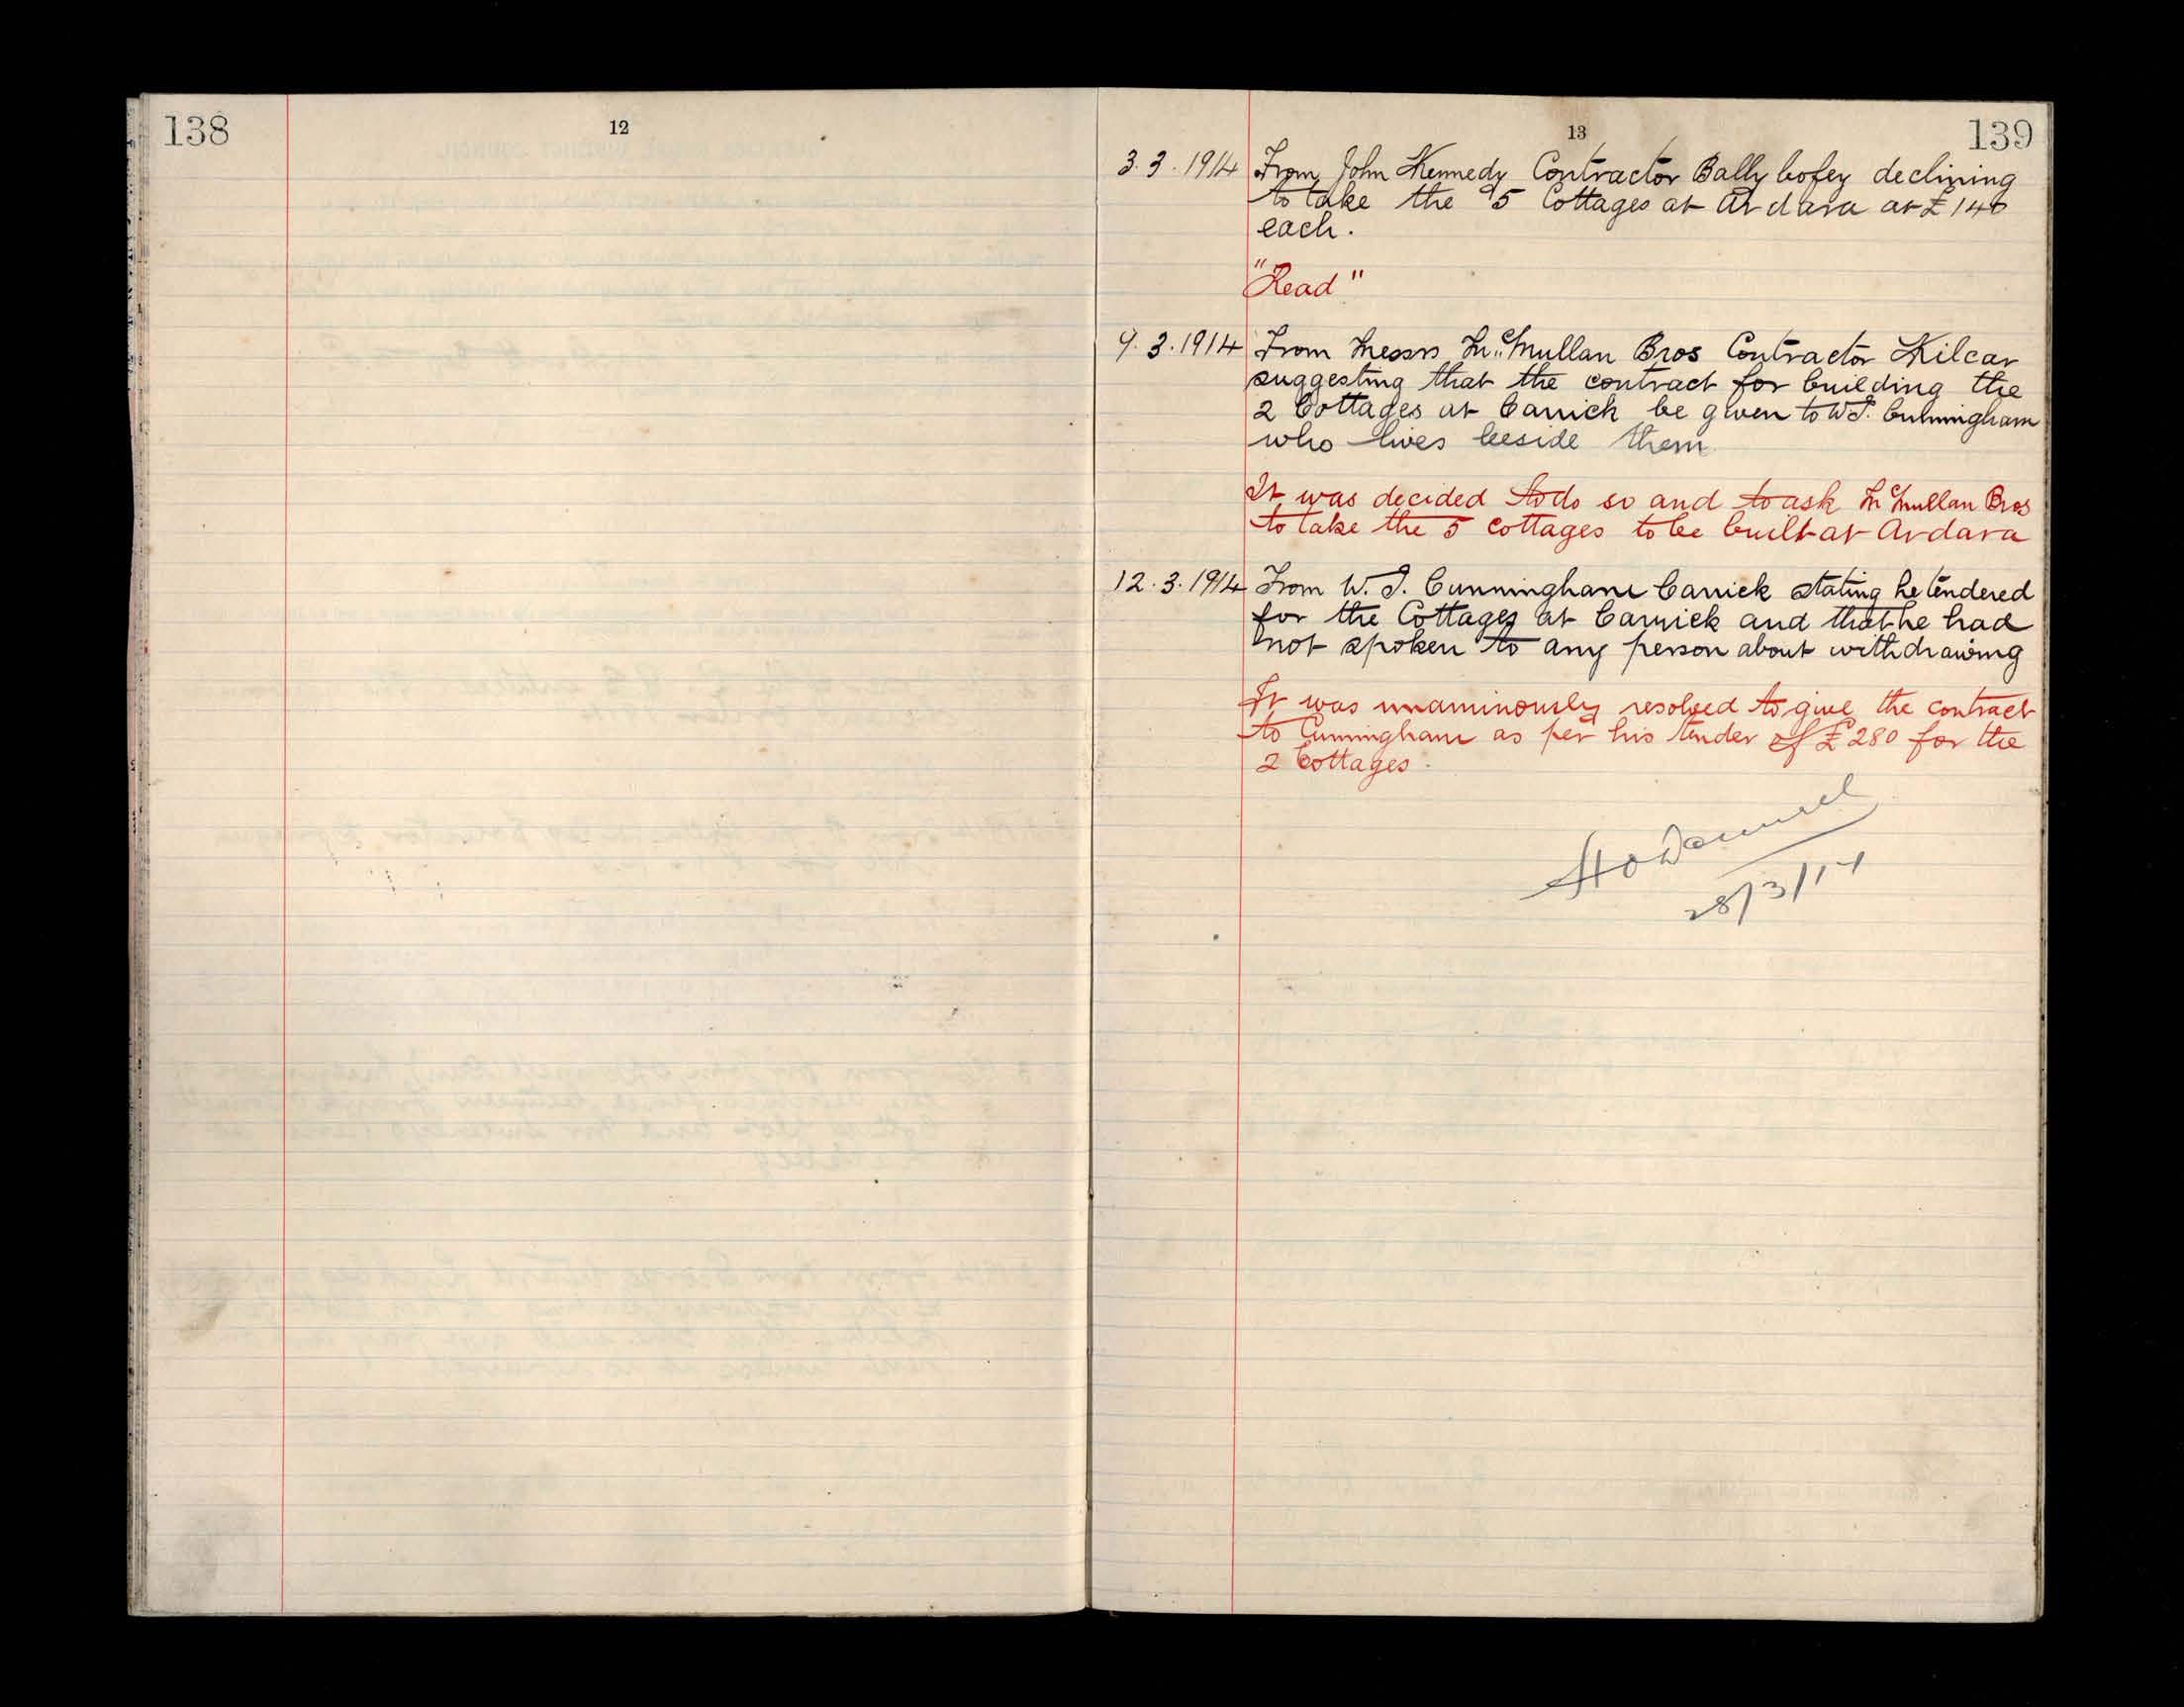 138
12
13
139
3.3.1914 From John Kennedy Contractor Ballybofey declining
to take the 5 Cottages at Ardara at £140
each.
"Read"
9.3.1914 From Messrs McMullan Bros Contractor Kilcar
suggesting that the contract for building the
2 Cottages at Carrick be given to W.J. Cunningham
who lives beside them
It was decided to do so and to ask McMullan Bros
to take the 5 cottages to be built at Ardara
12.3.1914 From W. J. Cunningham Carrick stating he tendered
for the Cottages at Carrick and that he had
not spoken to any person about withdrawing
It was unaminously resolved to give the contract
to Cunningham as per his tender of £280 for the
2 Cottages.
28/3/14